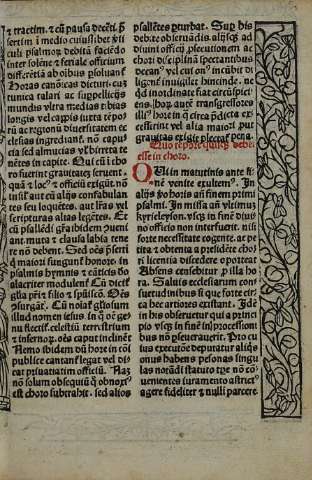 & tractim. & cū pausa decēti. p̄
sertim ī medio cuiuslibet v̄si
culi psalmoꝝ debita faciēdo
inter solēne & feriale officium
differētia ab oībus psoluant̄
Horas canonicas dicturi. cuꝫ
tunica talari ac suppelliciis
mundis vltra medias tibias
longis vel cappis iuxta tēpo
rū ac regionū diuersitatem ec
clesias ingrediant̄. nō capuci
os sed almucias vel birreta te
nētes in capite. Qui cū ī cho
ro fuerint grauitatē seruent.
quā & loc⁹ & officiū exigūt nō
insiml̄ aut cū aliis confabulan
tes seu loquētes. aut lr̄as vel
scripturas alias legētes. Et
cū psallēdi gr̄a ibidem ꝯueni
ant. muta & clausa labia tene
re nō debent. Sed oēs p̄sertī
qui maiori fungunt̄ honore. in
psalmis hymnis & cāticis deo
alacriter modulent̄ Cū dicit̄
glia pr̄i & filio & spūiscō. Oēs
ꝯsurgāt. Cū noīat̄ gliosum
illud nomen iesus. in quo oē ge
nu flectit̄. celestiū terrestrium
& infernoꝝ. oēs caput inclinēt
Nemo ibidem dū hore in cōi
publice cantant̄ legat vel di
cat priuatim officiū. Naꝫ
nō solum obsequiū quo obnoxi⁹
est choro subtrahit. sed alios
psallētes ꝑturbat. Sup his
debite obseruādis. aliisqꝫ ad
diuini officij ꝓsecutionem ac
chori disciplinā spectantibus
decan⁹ vel cui on⁹ incūbit di
ligentī inuigilet hincinde. ne
quid inordinate fiat circūspici
ens. horaꝝ autē transgressores
illi⁹ hore in qua circa p̄dicta ex
cesserint vel alia maiori put
grauitas exigit plectat̄ pena.
Quo tēpore quisqꝫ debe
esse in choro.
QUi in matutinis ante fi
nē venite exultem⁹. In
aliis ꝟo horis añ finem primi
psalmi. In missa añ vltimum
kyrieleyson. vsqꝫ in finē diui
no officio non interfuerit. nisi
forte necessitate cogente. ac pe
tita & obtenta a presidēte cho
ri licentia discedere oporteat
Absens censebitur ꝓ illa ho
ra. Saluis ecclesiarum con
suetudinibus si que forte cir
ca hec artiores existant. Idē
in his obseruetur qui a princi
pio vsqꝫ in finē in processioni
bus nō perseuerauerit. Pro cu
ius executiōe depuratur aliqs
onus habens personas singu
las notādi statuto tp̄e nō cō
uenientes iuramento astrict⁹
agere fideliter & nulli parcere